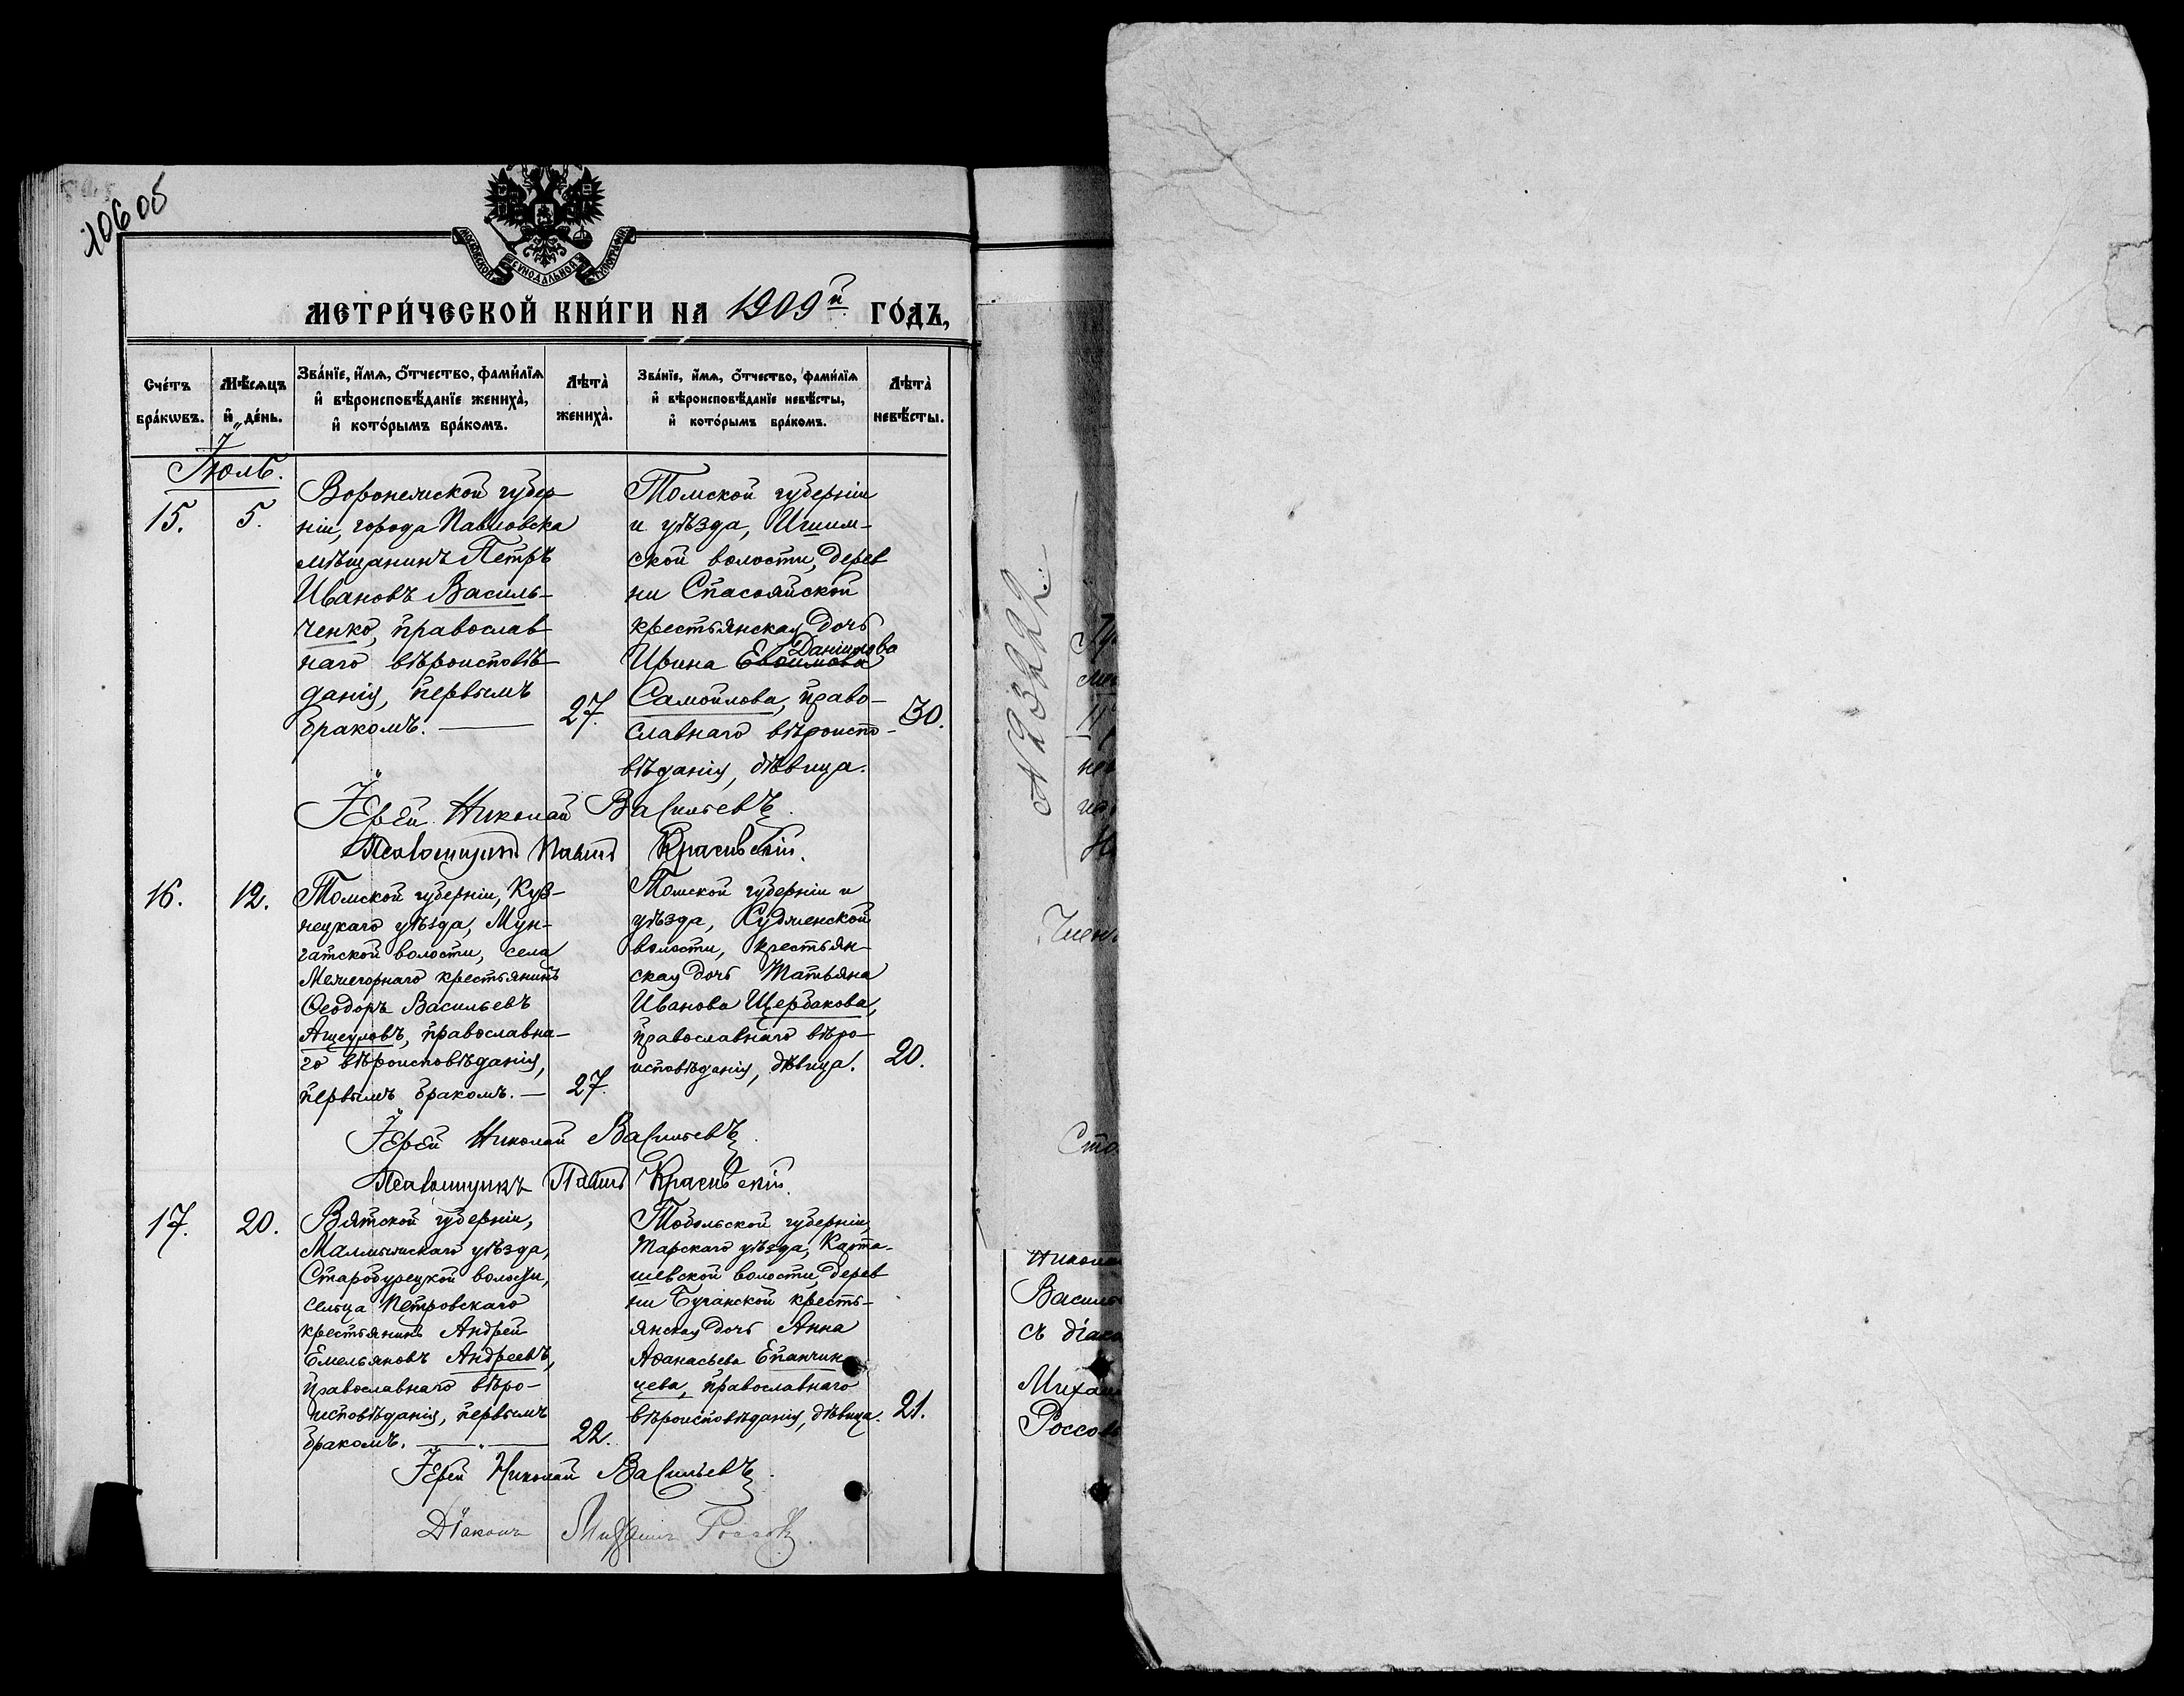 106 об
МОСКОВСКОЙ СѴНОДАЛЬНОЙ ТИПОГРАФІИ
МЕТРИ́ЧЕСКОЙ КНИ́ГИ НА 1909й ГО́ДЪ,
Сче́тъ бра́кωвъ.
Мѣ́сѧцъ и҆ де́нь.
Зва́нїе, и҆́мѧ, ѻ҆́тчество, фами́лїѧ и҆ вѣроисповѣ́данїе жениха̀, и҆ кото́рымъ бра́комъ.
Лѣта̀ жениха̀.
Зва́нїе, и҆́мѧ, ѻ҆́тчество, фами́лїѧ и҆ вѣроисповѣ́данїе невѣ́сты, и҆ кото́рымъ бра́комъ.
Лѣта̀ невѣ́сты.
Іюль.
15.
5.
Воронежской губер-
ніи, города Павловска
мѣщанинъ Петръ
Ивановъ Василь-
ченко, православ
наго вѣроисповѣ-
данія, первымъ
бракомъ.
27.
Томской губерніи
и уѣзда, Ишим-
ской волости, дерев
ни Спасояйской
крестьянская дочь
Данiилова
Ирина Евфимова
Самойлова, право-
славнаго вѣроиспо-
вѣданія, дѣвица.
30.
Іерей Николай Васильевъ.
Псаломщикъ Павелъ
16.
12.
Томской губерніи, Куз-
нецкаго уѣзда, Мун-
гатской волости, села
Межегорнаго крестьянинъ
Ѳеодоръ Васильевъ
Ащеуловъ, православна-
го вѣроисповѣданія,
первымъ бракомъ.
27.
Томской губерніи и
уѣзда, Судженской
волости, крестьян-
ская дочь Татьяна
Иванова Щербакова,
православнаго вѣро-
исповѣданія, дѣвица.
20.
Іерей Николай Васильевъ.
Псаломщикъ Павелъ
17.
20.
Вятской губерніи,
Малмыжскаго уѣзда,
Старобурецкой волости,
сельца Петровскаго
крестьянинъ Андрей
Емельяновъ Андреевъ,
православнаго вѣро-
исповѣданія, первымъ
бракомъ.
22.
Тобольской губерніи,
Тарскаго уѣзда, Карта-
шевской волости, дерев
ни Бутаκской кресть-
янская дочь Анна
Аѳанасьева Епанчин
цева, православнаго
вѣроисповѣданія, дѣвица.
21.
Іерей Николай Васильевъ.
Діаконъ Михаилъ Россовъ
Василь
съ діако
Миха
Россов